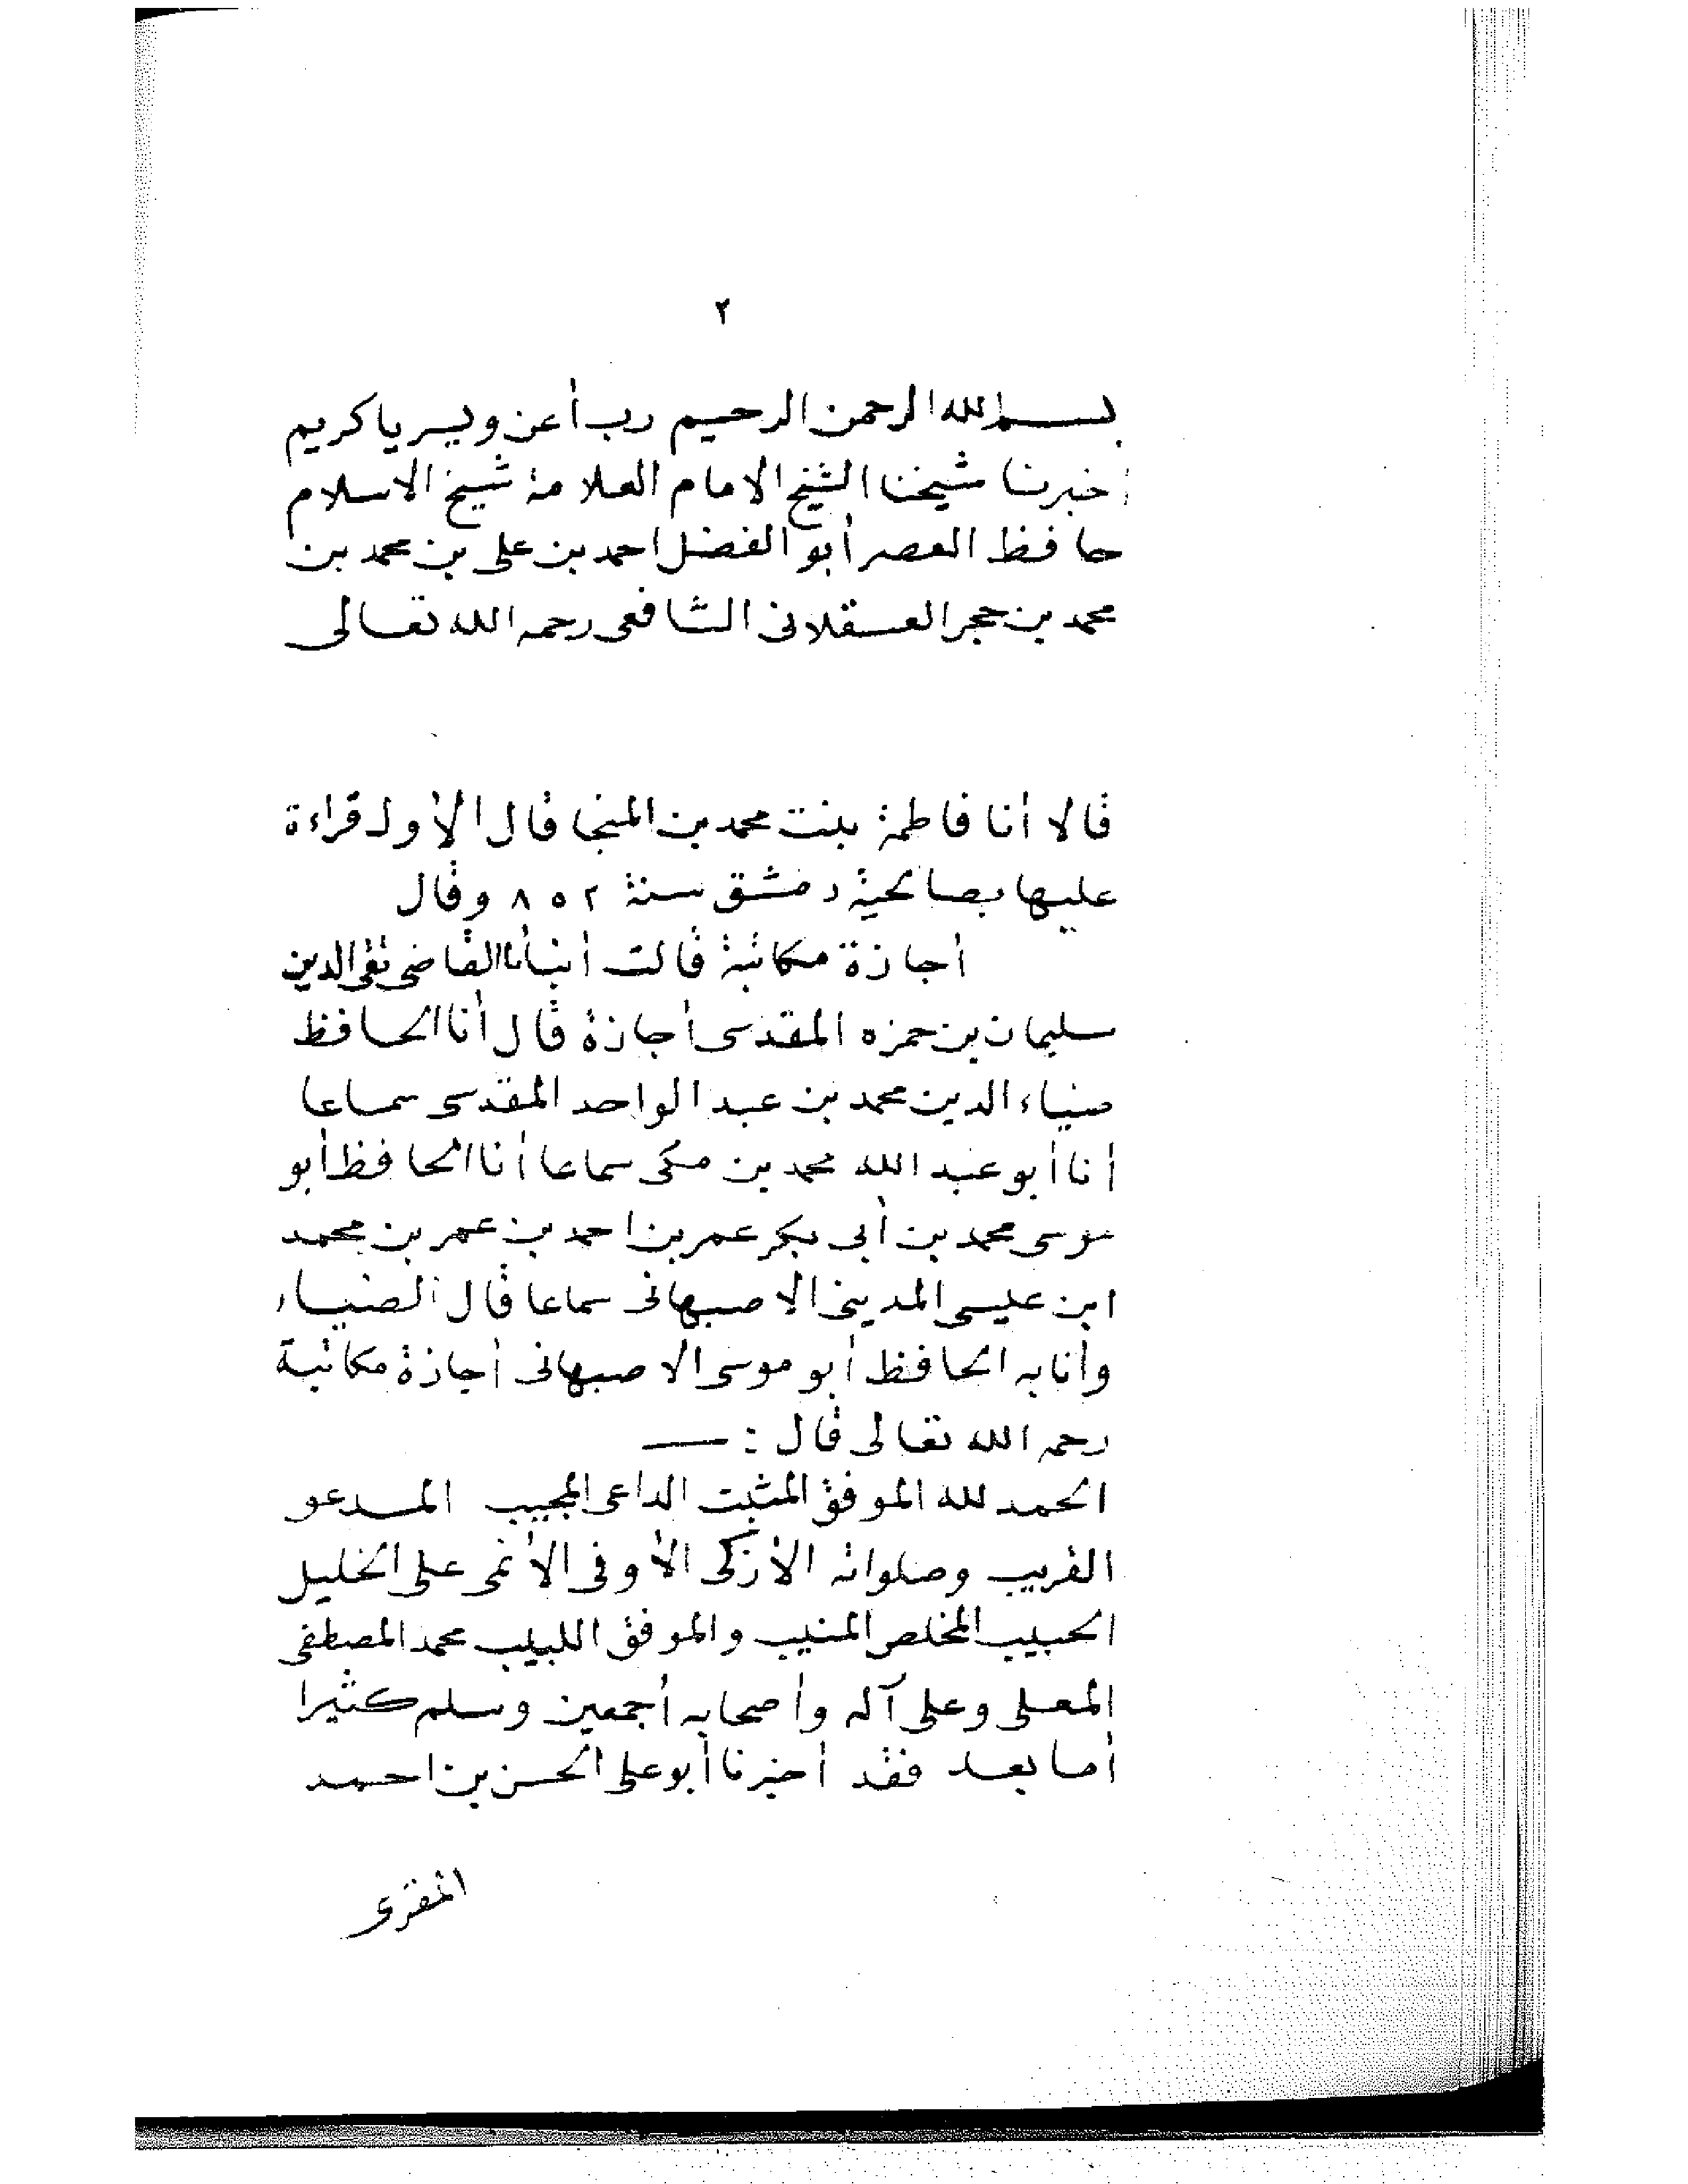 ٢
بسم الله الرحمن الرحيم رب أعن ويسر ياكريم
اخبرنا شيخنا الشيخ الامام العلامة شيخ الاسلام
حافظ العصر أبو الفضل احمد بن على بن محمد بن
محمد بن حجر العسقلانى الشافعى رحمه الله تعالى
قالا أنا فاطمة بنت محمد بن المنجا قال الأول قراءة
عليها بصالحية دمشق سنة ٨٥٢ وقال
أجازة مكاتبة قالت أنبأنا القاضى تقى الدين
سليمان بن حمزه المقدسى أجازة قال أنا الحافظ
ضياء الدين محمد بن عبد الواحد المقدسى سماعا
أنا أبو عبد الله محمد بن مكى سماعا أنا الحافظ أبو
موسى محمد بن أبى بكر عمر بن احمد بن عمر بن محمد
ابن عيسى المدينى الاصبهانى سماعا قال الضياء
وأنا به الحافظ أبو موسى الاصبهانى أجازة مكاتبة
رحمه الله تعالى قال : ــــ
الحمد لله الموفق المثبت الداعى المجيب المدعو
القريب وصلواته الأزكى الأوفى الأنمى على الخليل
الحبيب المخلص المنيب والموفق اللبيب محمد المصطفى
المعلى وعلى آله وأصحابه أجمعين وسلم كثيرا
أما بعد فقد أخبرنا أبو على الحسن بن احمد
المقرى